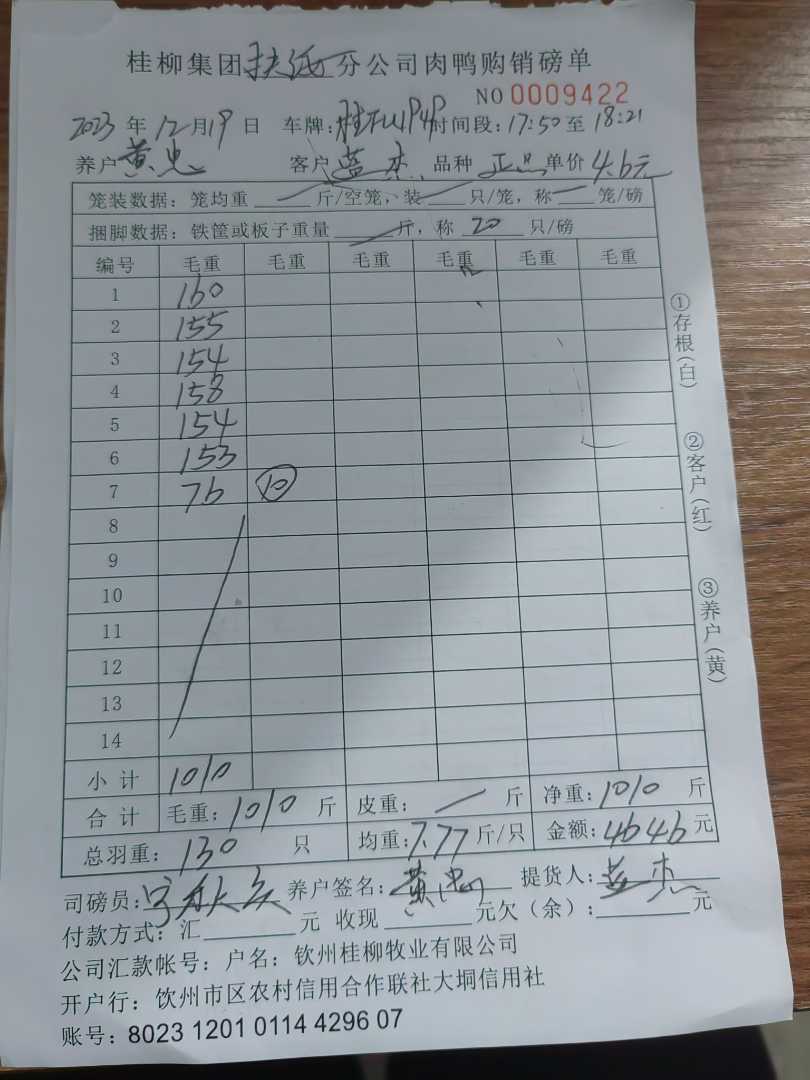 桂柳集团扶绥分公司肉鸭购销磅单
NO 0009422
2023年12月19日 车牌: 时间段:17:50至18:21
养户黄忠 客户蓝杰 品种正品单价4.6元
笼装数据：笼均重 斤/空笼，装 只/笼，称 笼/磅
捆脚数据：铁筐或板子重量 斤，称 20 只/磅
编号 毛重 毛重 毛重 毛重 毛重 毛重
1 160
2 155
3 154
4 158
5 154
6 153
7 76 ⑩
8
9
10
11
12
13
14
小计 1010
合计 毛重：1010斤 皮重： 斤 净重：1010斤
总羽重：130只 均重：7.77斤/只 金额：4646元
司磅员： 养户签名：黄忠 提货人：蓝杰
付款方式：汇 元 收现 元欠（余）： 元
公司汇款帐号：户名：钦州桂柳牧业有限公司
开户行：钦州市区农村信用合作联社大垌信用社
账号：8023 1201 0114 4296 07
①存根(白)
②客户(红)
③养户(黄)